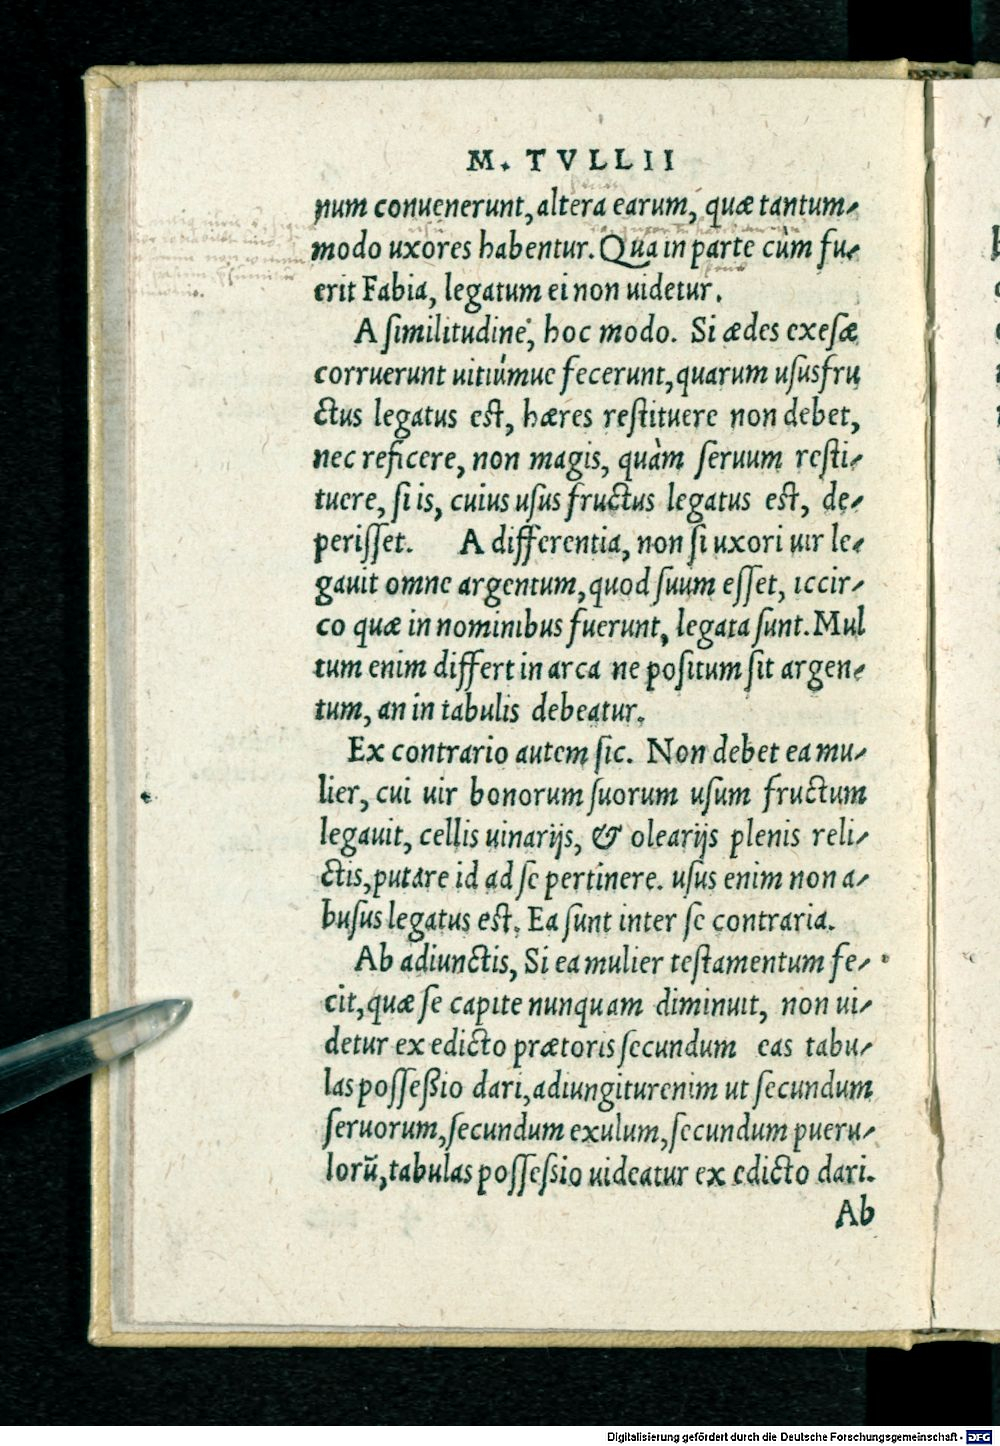 M. TVLLII
num conuenerunt, altera earum, quæ tantum-
modo uxores habentur. Qua in parte cùm fu-
erit Fabia, legatum ei non uidetur.
A ſimilitudine, hoc modo. Si ædes exeſæ
corruerunt uitiúmue fecerunt, quarum uſusfru
ctus legatus eſt, hæres reſtituere non debet,
nec reficere, non magis, quàm ſeruum reſti-
tuere, ſi is, cuius uſus fructus legatus eſt, de-
periſſet. A differentia, non ſi uxori uir le-
gauit omne argentum, quod ſuum eſſet, iccir-
co quæ in nominibus fuerunt, legata ſunt. Mul
tum enim differt in arca ne poſitum ſit argen-
tum, an in tabulis debeatur.
Ex contrario autem ſic. Non debet ea mu-
lier, cui uir bonorum ſuorum uſum fructum
legauit, cellis uinarijs, & olearijs plenis reli-
ctis, putare id ad ſe pertinere. uſus enim non a-
buſus legatus eſt. Ea ſunt inter ſe contraria.
Ab adiunctis, Si ea mulier teſtamentum fe-
cit, quæ ſe capite nunquam diminuit, non ui-
detur ex edicto prætoris ſecundum eas tabu-
las poſſeßio dari, adiungitur enim ut ſecundum
ſeruorum, ſecundum exulum, ſecundum pueru-
lorũ, tabulas poſſeſsio uideatur ex edicto dari.
Ab
Digitalisierung gefördert durch die Deutsche Forschungsgemeinschaft - DFG